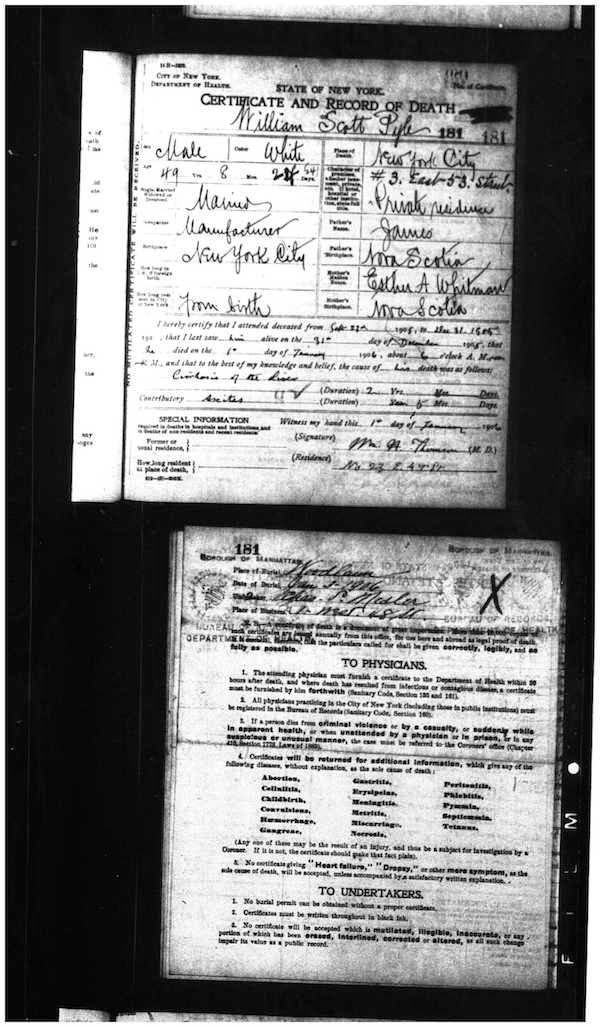 CITY OF NEW YORK.
DEPARTMENT OF HEALTH.
STATE OF NEW YORK.
No. of Certificate,
CERTIFICATE AND RECORD OF DEATH
OF
William Scott Pyle 181 181
Sex Male Color White Place of Death New York City
Age 49 Yrs. 8 Mos. Days. # 3. East 53. Street
Character of premises, whether tenement, private, etc. If hotel, hospital or other institution, state full title. Private residence
Single, Married, Widowed or Divorced Married
Occupation Manufacturer Father's Name. James
Birthplace New York City Father's Birthplace. Nova Scotia
How long in U.S. if foreign birth. Mother's Maiden Name. Esther A Whitman
How long resident in City of New York from birth Mother's Birthplace. Nova Scotia
I hereby certify that I attended deceased from Sept 1905, to Dec 31. 1905
190 , that I last saw him alive on the 31st day of December 1905, that
he died on the 1st day of January 1906, about 6 o'clock A. M.
P. M., and that to the best of my knowledge and belief, the cause of his death was as follows:
Cirrhosis of the Liver
(Duration) 2 Yrs. Mos. Days.
Contributory Ascites (Duration) Years 5 Mos Days.
SPECIAL INFORMATION
required in deaths in hospitals and institutions and in deaths of non-residents and recent residents.
Witness my hand this 1st day of January 1906
Former or usual residence, (Signature) Wm H. Thomson (M. D.)
How long resident at place of death, (Residence) No 23 E. 47 St
181
BOROUGH OF MANHATTAN. BOROUGH OF MANHATTAN.
Place of Burial, Woodlawn
Date of Burial,
Undertaker
Place of Business,
BUREAU OF RECORDS
DEPARTMENT OF
fully as possible.
TO PHYSICIANS.
1. The attending physician must furnish a certificate to the Department of Health within 36
hours after death, and where death has resulted from infectious or contagious disease, a certificate
must be furnished by him forthwith (Sanitary Code, Section 135 and 161).
2. All physicians practicing in the City of New York (including those in public institutions) must
be registered in the Bureau of Records (Sanitary Code, Section 160).
3. If a person dies from criminal violence or by a casualty, or suddenly while
in apparent health, or when unattended by a physician or in prison, or in any
suspicious or unusual manner, the case must be referred to the Coroners' office (Chapter
410, Section 1773, Laws of 1882).
4. Certificates will be returned for additional information, which give any of the
following diseases, without explanation, as the sole cause of death:
Abortion, Gastritis, Peritonitis,
Cellulitis, Erysipelas, Phlebitis,
Childbirth, Meningitis, Pyæmia,
Convulsions, Metritis, Septicæmia,
Hæmorrhage, Miscarriage, Tetanus.
Gangrene, Necrosis,
(Any one of these may be the result of an injury, and thus be a subject for investigation by a
Coroner. If it is not, the certificate should make that fact plain).
5. No certificate giving "Heart failure," "Dropsy," or other mere symptom, as the
sole cause of death, will be accepted, unless accompanied by a satisfactory written explanation.
TO UNDERTAKERS.
1. No burial permit can be obtained without a proper certificate.
2. Certificates must be written throughout in black ink.
3. No certificate will be accepted which is mutilated, illegible, inaccurate, or any
portion of which has been erased, interlined, corrected or altered, as all such change
impair its value as a public record.
FILM